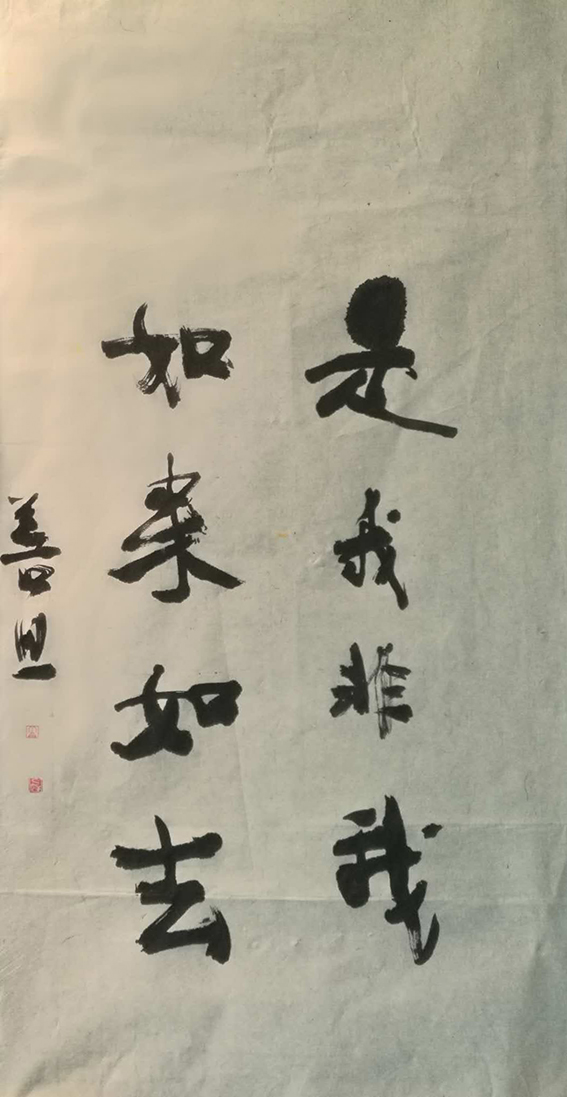 是我非我
如来如去
善旦